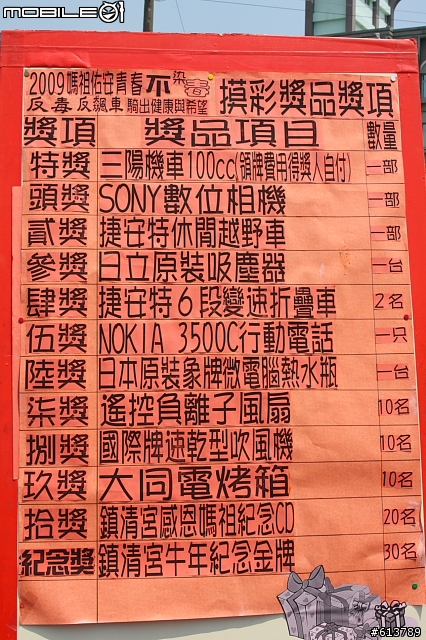 mobile01
2009媽祖佑安青春不染毒
反毒反飆車 騎出健康與希望
摸彩獎品獎項
獎項 獎品項目 數量
特獎 三陽機車100cc(領牌費用得獎人自付) 一部
頭獎 SONY數位相機 一部
貳獎 捷安特休閒越野車 一部
參獎 日立原裝吸塵器 一台
肆獎 捷安特6段變速折疊車 2名
伍獎 NOKIA 3500C行動電話 一只
陸獎 日本原裝象牌微電腦熱水瓶 一台
柒獎 遙控負離子風扇 10名
捌獎 國際牌速乾型吹風機 10名
玖獎 大同電烤箱 10名
拾獎 鎮清宮感恩媽祖紀念CD 20名
紀念獎 鎮清宮牛年紀念金牌 30名
#613789